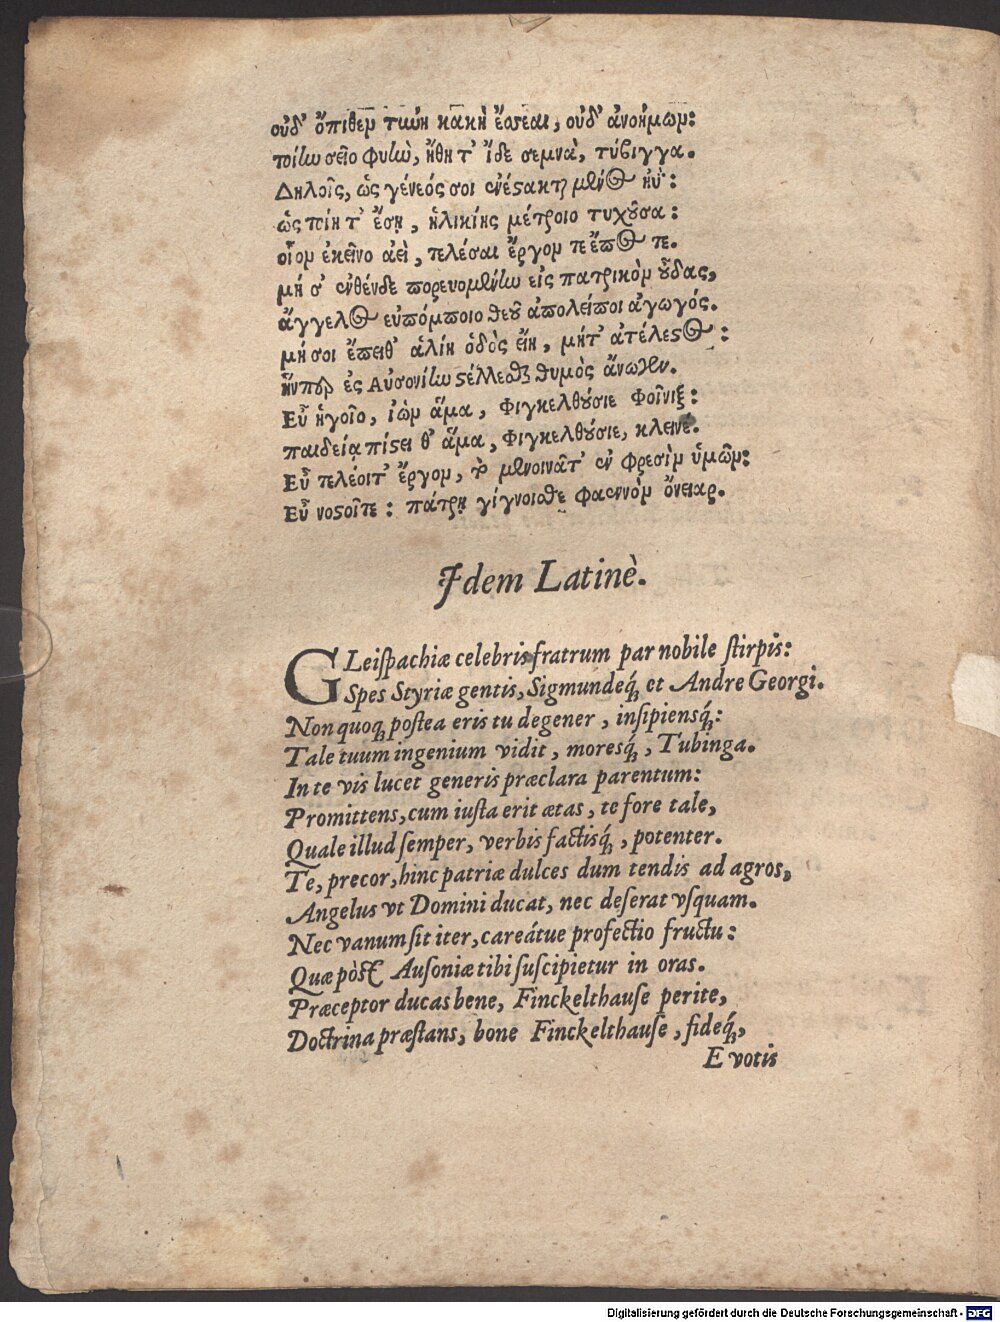 οὐδ' ὄπιθεν τιωὴ κακὴ ἔσσεαι, οὐδ' ἀνοήμων:
τοίην σεῖο φυὴν, ἤθη τ' ἴδε σεμνὰ, τύβιγγα.
Δηλοῖς, ὡς γένεός σοι ἐνέστακται μένος ἠΰ:
ὡς τοίη τ' ἔσῃ, ἡλικίης μέτροιο τυχοῦσα:
οἷον ἐκεῖνο ἀεὶ, τελέσαι ἔργον τε ἔπος τε.
μή σ' ἐνθένδε πορευομένην εἰς πατρικὸν οὖδας,
ἄγγελος εὐπόμποιο θεοῦ ἀπολείποι ἀγωγός.
μή σοι ἔπειθ' ἁλίη ὁδὸς εἴη, μήτ' ἀτέλεστος:
ἥνπερ ἐς Αὐσονίην στέλλεσθαι θυμὸς ἄνωγεν.
Εὖ ἡγοῖο, ἰὼν ἅμα, Φιγκελθούσιε Φοῖνιξ:
παιδείᾳ πίστει θ' ἅμα, Φιγκελθούσιε, κλεινέ.
Εὖ τελέοιτ' ἔργον, τὸ μενοινᾶτ' ἐν φρεσὶν ὑμῶν:
Εὖ νοστοῖτε: πάτρῃ γίγνοισθε φαεννὸν ὄνειαρ.
Idem Latinè.
GLeispachiæ celebris fratrum par nobile stirpis:
Spes Styriæ gentis, Sigmundeq́; et Andre Georgi.
Non quoq; postea eris tu degener, insipiensq́;:
Tale tuum ingenium vidit, moresq́;, Tubinga.
In te vis lucet generis præclara parentum:
Promittens, cum iusta erit ætas, te fore tale,
Quale illud semper, verbis factisq́;, potenter.
Te, precor, hinc patriæ dulces dum tendis ad agros,
Angelus vt Domini ducat, nec deserat vsquam.
Nec vanum sit iter, careátue profectio fructu:
Quæ pòst Ausoniæ tibi suscipietur in oras.
Præceptor ducas bene, Finckelthause perite,
Doctrina præstans, bone Finckelthause, fideq́;,
E votis
Digitalisierung gefördert durch die Deutsche Forschungsgemeinschaft - DFG